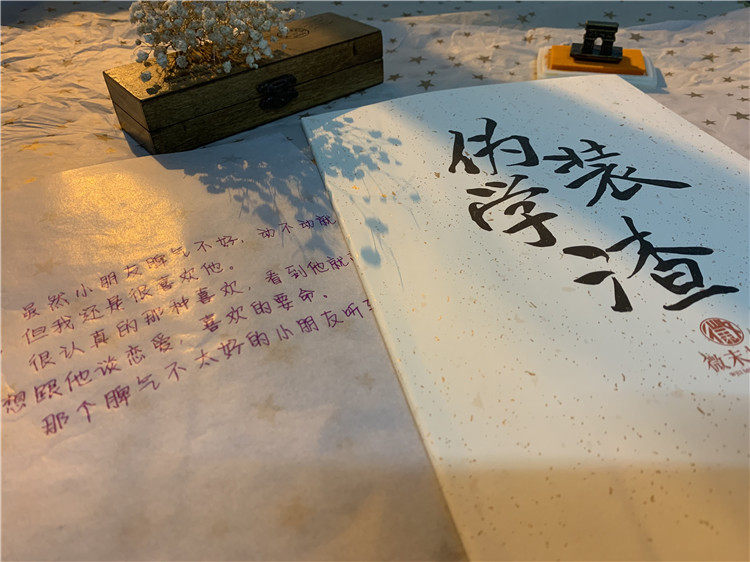 虽然小朋友脾气不好，动不动就
但我还是很喜欢他。
很认真的那种喜欢，看到他就
想跟他谈恋爱、喜欢的要命、
那个脾气不太好的小朋友听到
伪装
学渣